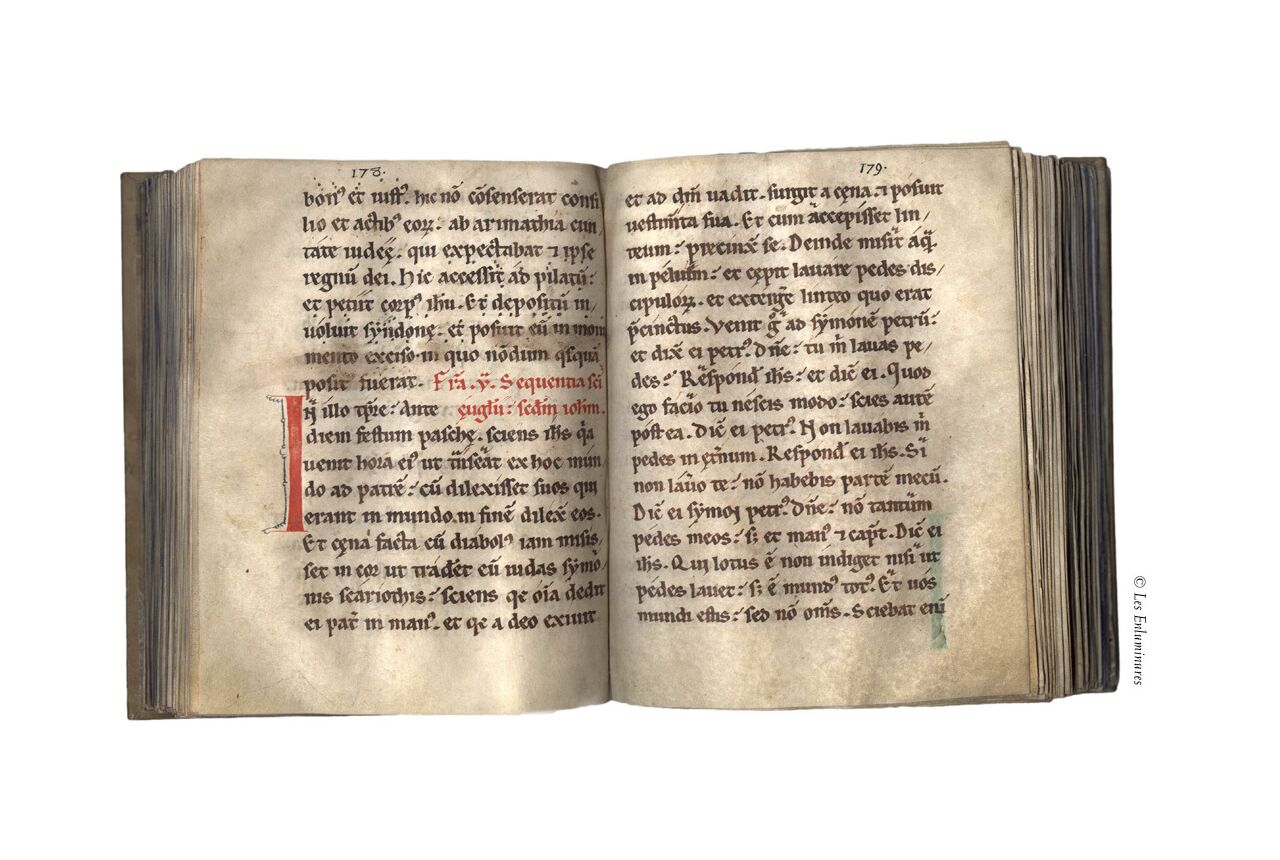 178.
bon᷒ et iust᷒. hic nō cōsenserat consi
lio et actib᷒ eoꝝ. ab arimathia ciui
tate iudeę. qui expectabat ⁊ ipse
regnū dei. Hic accessit ad pilatū:
et petiit corp᷒ ihu. Et depositū in/
uoluit syndone. et posuit eū in monu
mento exciso. in quo nōdum qsquā
posit᷒ fuerat. Fra. v. Sequentia sci
In illo tpre: Ante euglii: scdm iohm.
diem festum paschę. sciens ihs qa
uenit hora ei᷒ ut tnseat ex hoc mun/
do ad patrē: cū dilexisset suos qui
erant in mundo. in finē dilex̄ eos.
Et cęna facta cū diabol᷒ iam misis/
set in cor ut traderet eū iudas symo/
nis scariothis: sciens qe oīa dedit
ei pat in man᷒. et qe a deo exiuit
179.
et ad dm uadit. surgit a cęna ⁊ posuit
uestimta sua. Et cum accepisset lin/
teum: precinx̄ se. Deinde misit aq̄.
in peluim: et cępit lauare pedes dis/
cipuloꝝ. et exterge linteo quo erat
p̄cinctus. Venit g ad symonē petrū:
et dix̄ ei petr᷒. Dn̄e: tu m lauas pe/
des: Respond ihs: et dic̄ ei. Quod
ego facio tu nescis modo: scies autē
postea. Dic̄ ei petr᷒. Non lauabis m
pedes in etnum. Respond ei ihs. Si
non lauo te: nō habebis partē mecū.
Dic̄ ei symon petr᷒. Dn̄e: nō tantum
pedes meos: s; et man᷒ ⁊ capt. Dic̄ ei
ihs. Qui lotus ē non indiget nisi ut
pedes lauet: s; ē mund᷒ tot᷒. Et uos
mundi estis: sed nō oms. Sciebat eni
© Les Enluminures